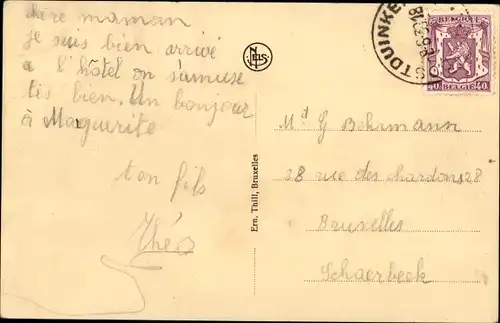 chère maman
je suis bien arrivé
a l'hôtel on s'amuse
tès bien. Un bonjour
à Marguerite
ton fils
Théo
NELS
Ern. Thill, Bruxelles
STDUINKE
BELGIQUE
40 BELGIE 40
Md G Bohemann
28 rue des chardons 28
Bruxelles
Schaerbeek